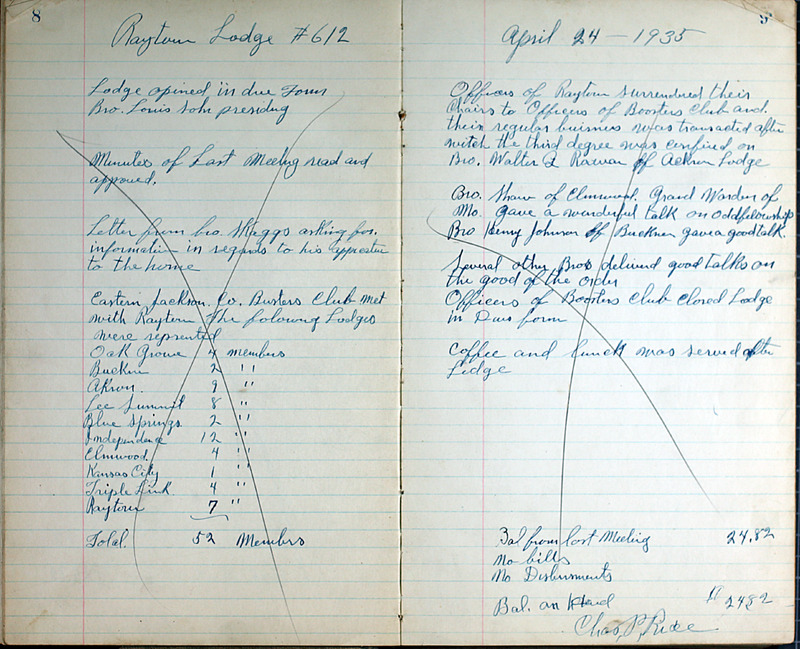 8
Raytown Lodge #612
Lodge opined in due Form
Bro. Louis Sohn presidng
Minutes of Last Meeting read and
appoved.
Letter from bro Skaggs asking for.
information in regards to his
to the home
Eastern Jackson. Co. Busters Club Met
with Raytown The folowing Lodges
were reprented
Oak Grove 4 members
Buckner 2 "
Akron. 9 "
Lee Summit 8 "
Blue Springs 2 "
Independence 12 "
Elmwood. 4 "
Kansas City 1 "
Triple Link 4 "
Raytown 7 "
Total. 52 Members
9
April 24 - 1935
Officers of Raytown surrendred their
Chairs to Officers of Boosters Club and.
their regular buisness was transacted after
witch the third degree was confired on
Bro. Walter of Ackron Lodge
Bro. Shaw of Elmwood. Grand Warden of
Mo. gave a wonderful talk on Oddfellowship
Bro Henry Johnson of Buckner gave a good talk.
Several other Bros delivred good talks on
the good of the order
Officers of Boosters Club Closed Lodge
in Due form
Coffee and lunch was served after
Lodge
Bal from last Meeting 24.82
No bills
No Disbursments
Bal. on Hand $ 2482
Chas. P. Rice